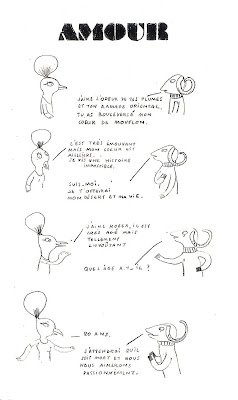 AMOUR
J'AIME L'ODEUR DE TES PLUMES
ET TON RAMAGE ORIENTAL.
TU AS BOULEVERSÉ MON
COEUR DE MOUFLON.
C'EST TRÈS ÉMOUVANT
MAIS MON COEUR EST
AILLEURS.
JE VIS UNE HISTOIRE
IMPOSSIBLE.
SUIS-MOI,
JE T'OFFRIRAI
MON DÉSERT ET MA VIE.
J'AIME ROGER, IL EST
TRÈS AGÉ MAIS
TELLEMENT
ENVOÛTANT
QUEL ÂGE A-T-IL ?
80 ANS.
J'ATTENDRAI QU'IL
SOIT MORT ET NOUS
NOUS AIMERONS
PASSIONNÉMENT.